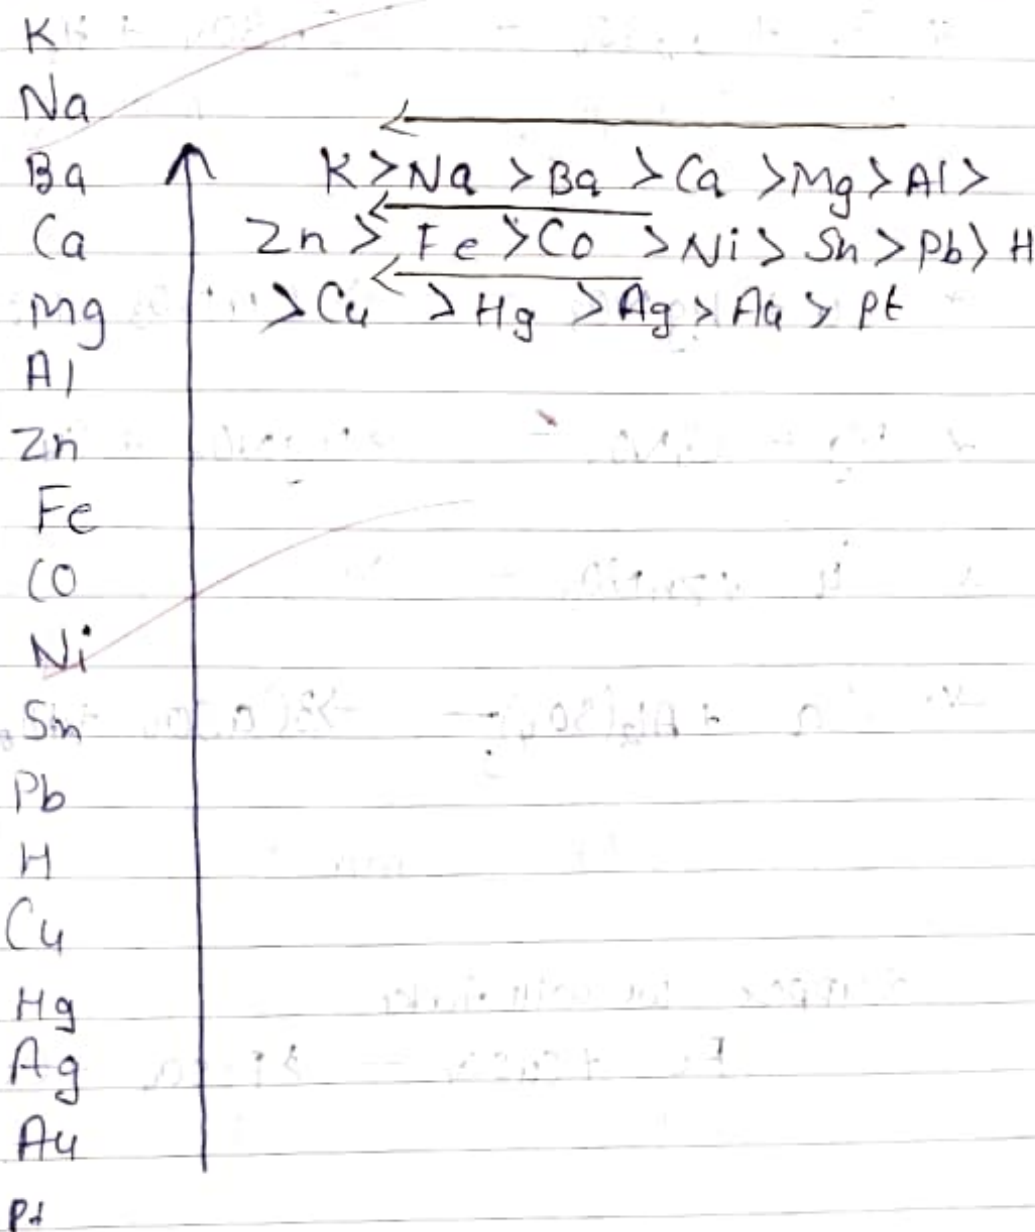 K
Na
Ba
Ca
Mg
Al
Zn
Fe
CO
Ni
Sn
Pb
H
Cu
Hg
Ag
Au
Pt
K > Na > Ba > Ca > Mg > Al >
Zn > Fe > Co > Ni > Sn > Pb > H
> Cu > Hg > Ag > Au > Pt